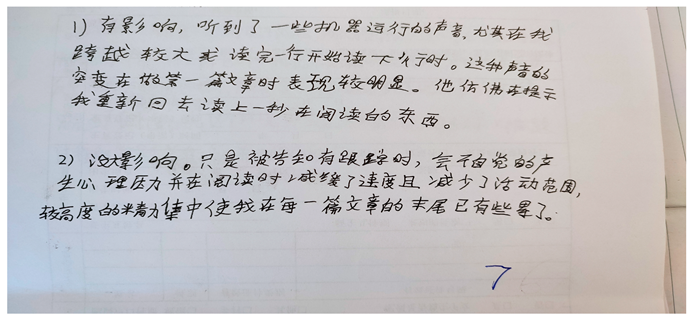 1) 有影响，听到了一些机器运行的声音，尤其在我
跨越较大或读完一行开始读下一行时。这种声音的
突变在做第一篇文章时表现较明显。他仿佛在提示
我重新回去读上一秒在阅读的东西。
2) 没影响。只是被告知有跟踪时，会不自觉的产
生心理压力并在阅读时减缓了速度且减少了活动范围，
较高度的精力集中使我在每一篇文章的末尾已有些累了。
7